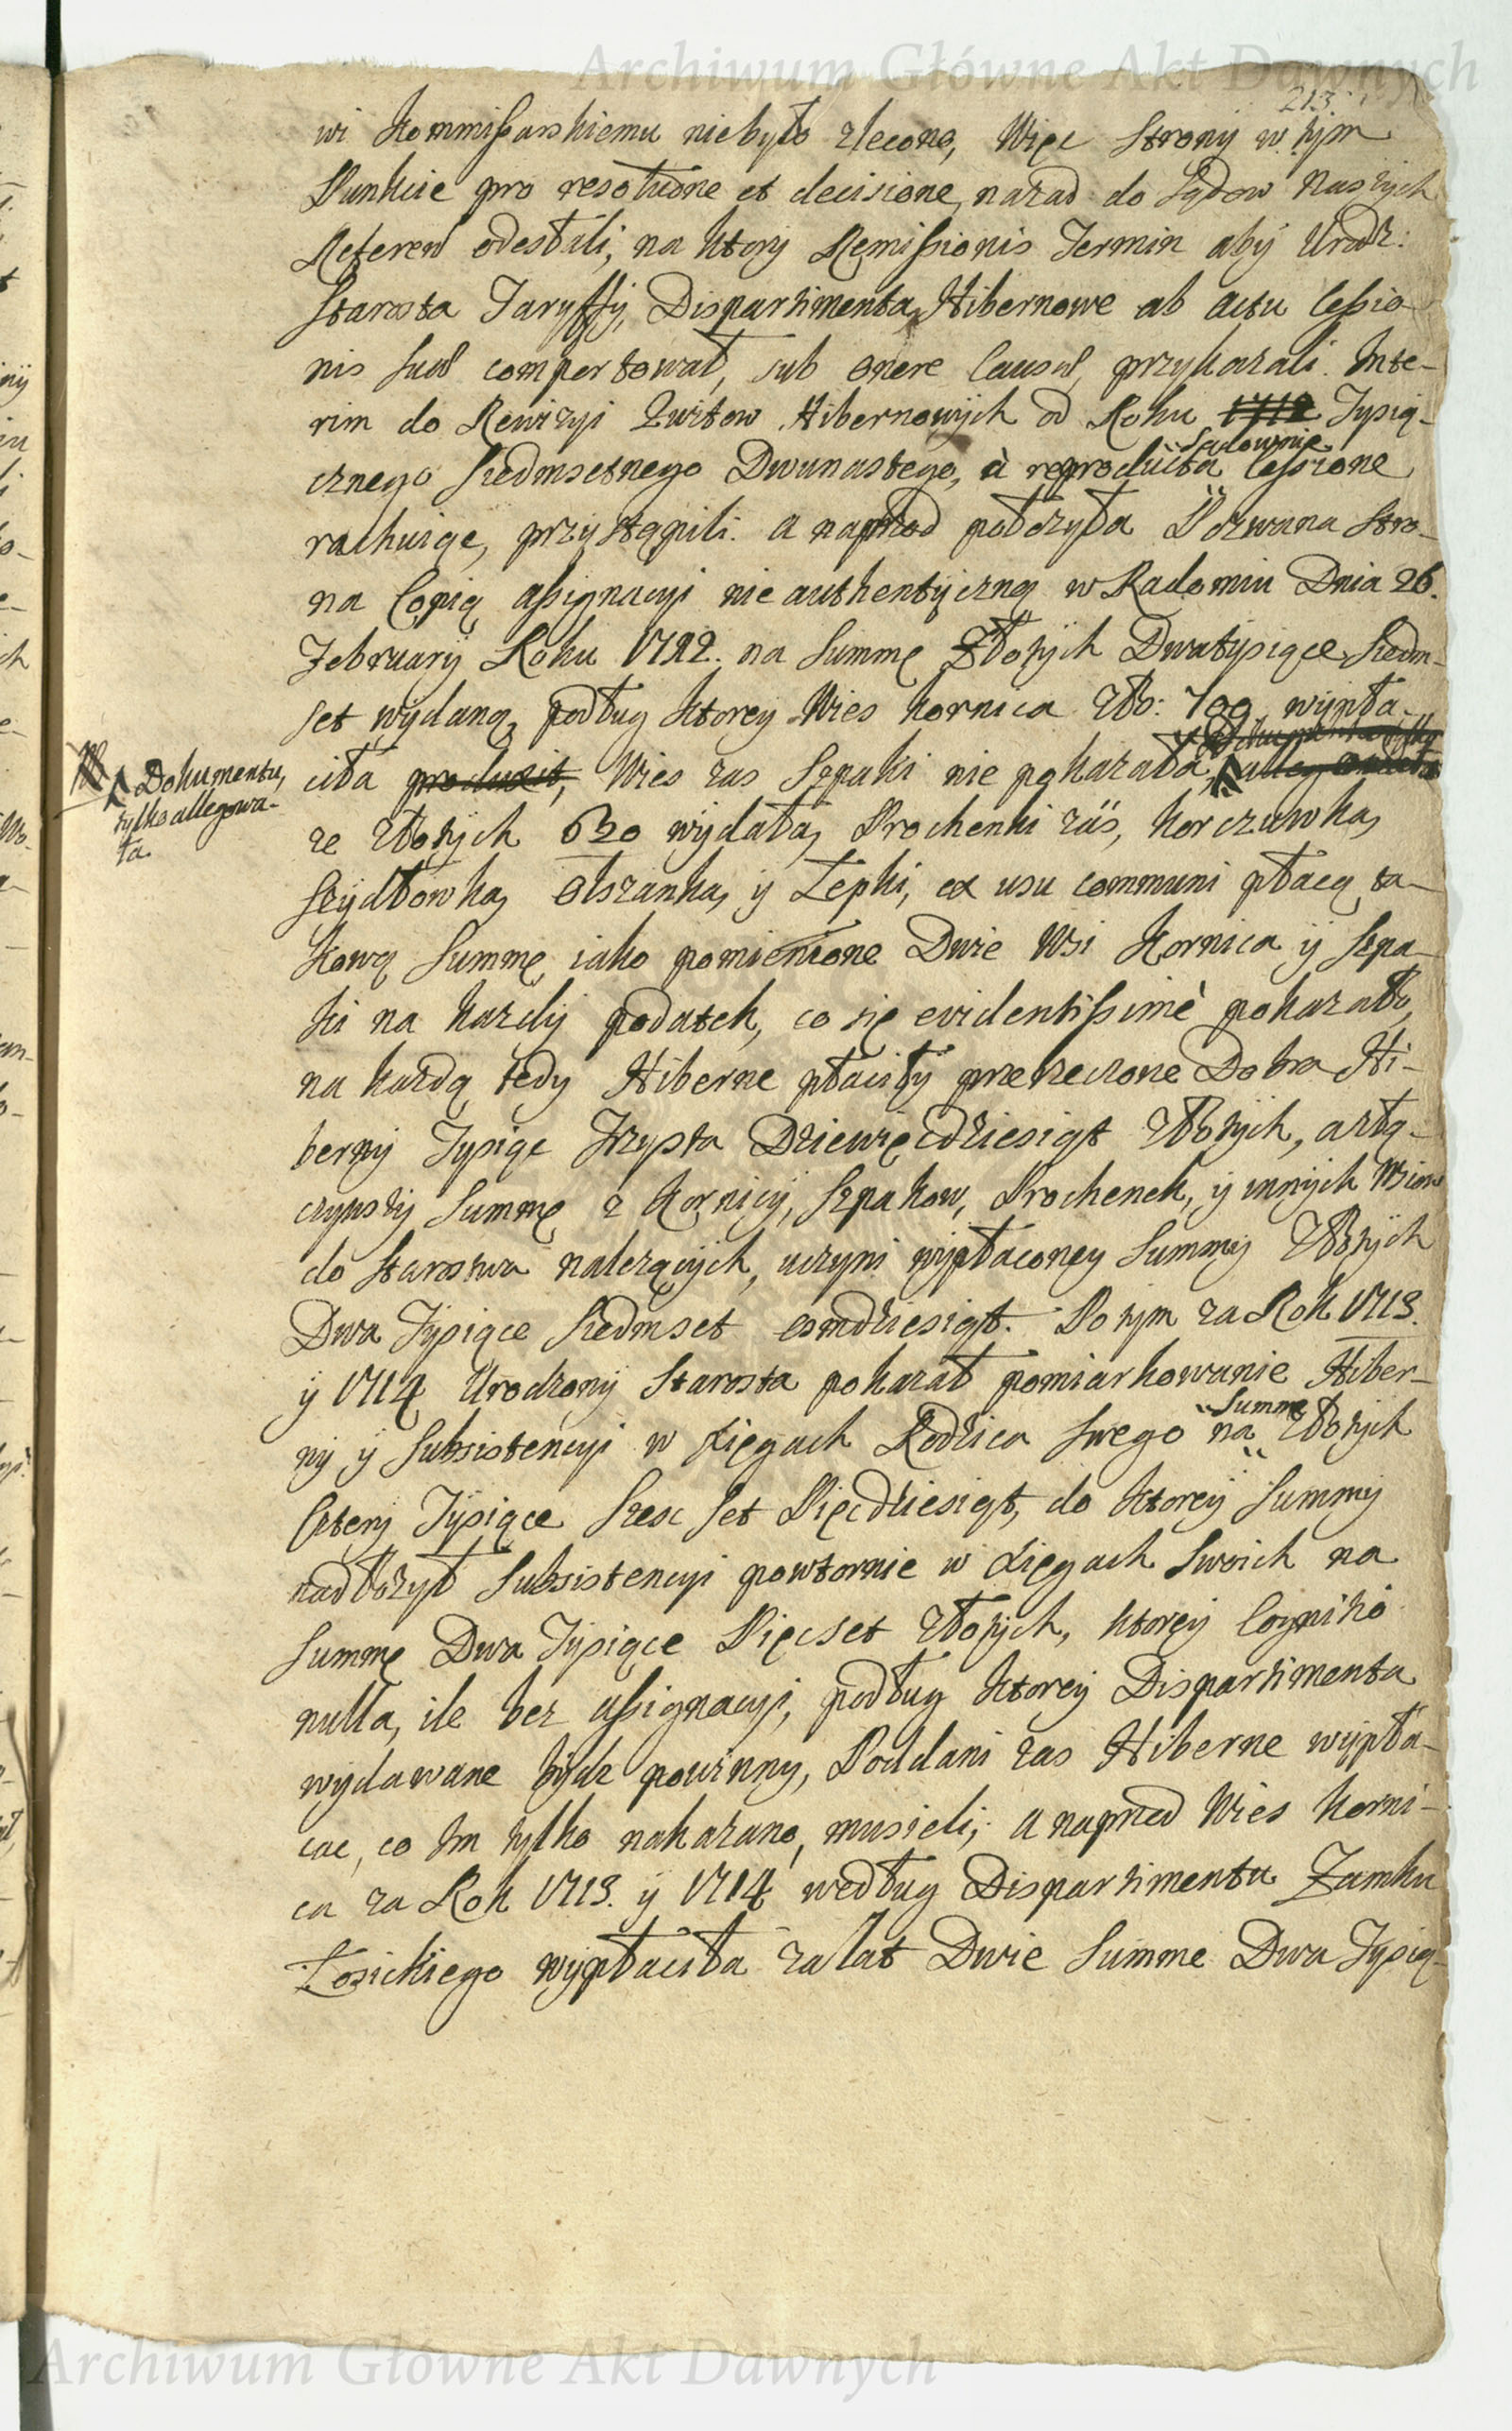 Archiwum Główne Akt Dawnych
213
wi Kommissarskiemu niebyło zlecono, Więc Strony w tym
Punkcie pro resolutione et decisione, nazad do Sądow Naszych
Referend odesłali, na ktory Remissionis Termin aby Urodz:
Starosta Taryffy, Dispartimenta Hibernowe ab actu Cessio-
nis suae comportował, sub onere Causae, przykazali. Inte-
rim do Rewizyi Kwitow Hibernowych od Roku 1712 Tysią-
cznego Siedmsetnego Dwunastego, à reproducta Sądownie Cessione
rachuiąc, przystąpili. a naprzod położyła Pozwana Stro-
na Copią assignacyi nie authentyczną w Radomiu Dnia 26.
February Roku 1712. na Summę Złotych Dwatysiące Siedm-
set wydaną, podług ktorey Wies Kornica Zło: 700 wypła-
ciła produxit, Wies zas Szpaki nie pokazała,
Dokumentu,
tylko allegowa-
ła
ze Złotych 630 wydała, Prochenki zaś, Korczuwka,
Szydłowka, Olszanka, y Łepki, ex usu communi płacą ta-
kową Summę, iako pomienione Dwie Wsi Kornica y Szpa-
ki na kazdy podatek, co się evidentissimè pokazało,
na kazdą tedy Hiberne płaciły przerzeczone Dobra Hi-
berny Tysiąc Trzysta Dziewięcdziesiąt Złotych, a złą-
czywszy Summę z Kornicy, Szpakow, Prochenek, y innych Wsiow
do Starostwa nalezących, uczyni wypłaconey Summy Złotych
Dwa Tysiące Siedmset osmdziesiąt. Potym za Rok 1713.
y 1714 Urodzony Starosta pokazał pomiarkowanie Hiber-
ny y Subsistencyi w Xięgach Rodzica swego na Summę Złotych
Cztery Tysiące Szesc set Pięcdziesiąt, do ktorey Summy
nadłożył Subsistencyi powtornie w Xięgach swoich na
Summę Dwa Tysiące Pięcset Złotych, ktorey Cognitio
nulla, ile bez assignacyi, podług ktorey Dispartimenta
wydawane bydz powinny, Poddani zas Hiberne wypła-
cac, co Im tylko nakazano, musieli; a naprzod Wies Korni-
ca za Rok 1713. y 1714 według Dispartimentu Zamku
Łosickiego wypłaciła za lat Dwie Summe Dwa Tysią-
Archiwum Główne Akt Dawnych